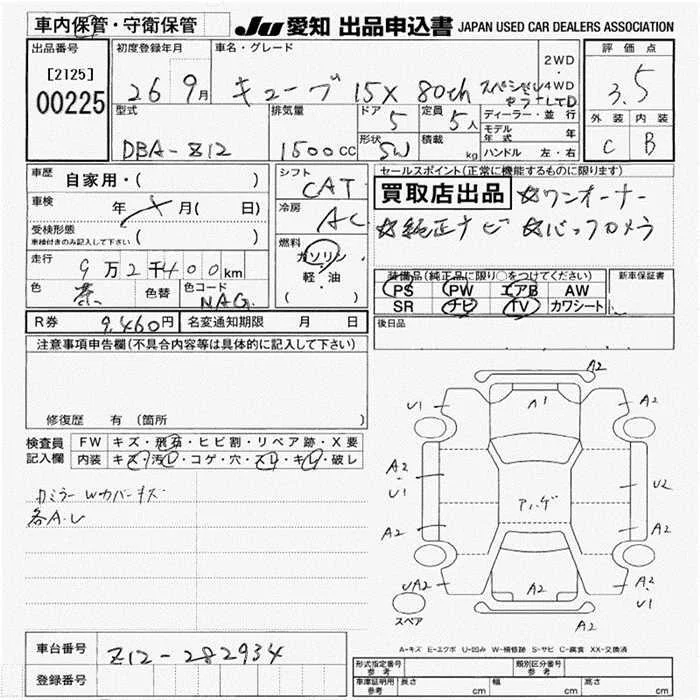 車内保管・守衛保管 JU 愛知 出品申込書 JAPAN USED CAR DEALERS ASSOCIATION
出品番号 初度登録年月 車名・グレード 2WD 評価点
[2125] 26 9月 キューブ 15X 80th スペシャルカラーLTD 4WD 3.5
00225
型式 排気量 ドア 定員 ディーラー・並行 外装 内装
5 5人 モデル年式 年
DBA-Z12 1500CC 形状 SW 積載 kg ハンドル 左・右 C B
車歴 自家用・( ) シフト CAT セールスポイント(正常に機能するものに限ります)
車検 年 月( 日) 冷房 AC 買取店出品 ☆ワンオーナー
受検形態 ( ) ☆純正ナビ ☆バックカメラ
車検付きのみ記入して下さい
走行 9万2千400km 燃料 ガソリン・軽・油 ( )
装備品(純正品に限り○をつけてください) 新車保証書
色 茶 色替 色コード NAG PS PW エアB AW
SR ナビ TV カワシート
R券 9,460円 名変通知期限 月 日 後日品
注意事項申告欄(不具合内容等は具体的に記入して下さい)
修復歴 有 (箇所 )
検査員記入欄 FW キズ・飛石・ヒビ割・リペア跡・X要
内装 キズ・汚レ・コゲ・穴・スレ・キレ・破レ
カミラーWカバーキズ
各A.U
A2
U1 A1 A2
A2 U1 アハ゛ゲ U2
A2 A2
UA2 A2 A2 U1
スペア A2
A-キズ E-エクボ U-凹み W-補修跡 S-サビ C-腐食 XX-交換済
車台番号 Z12-282934
登録番号
形式指定番号 参考 類別区分番号 参考
車庫証明用 参考 長さ cm 幅 cm 高さ cm